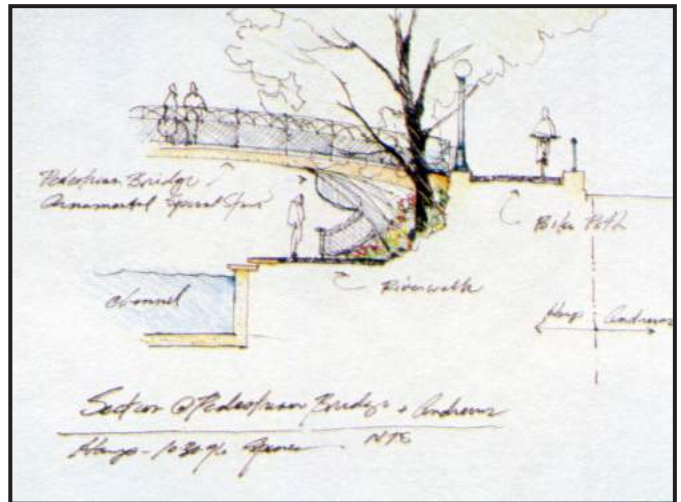 Pedestrian Bridge /
Ornamental Spiral Stair
Bike Path
Riverwalk
Channel
Hays Andrews
Section @ Pedestrian Bridge + Andrews
Hays - 10 30 96 NTS